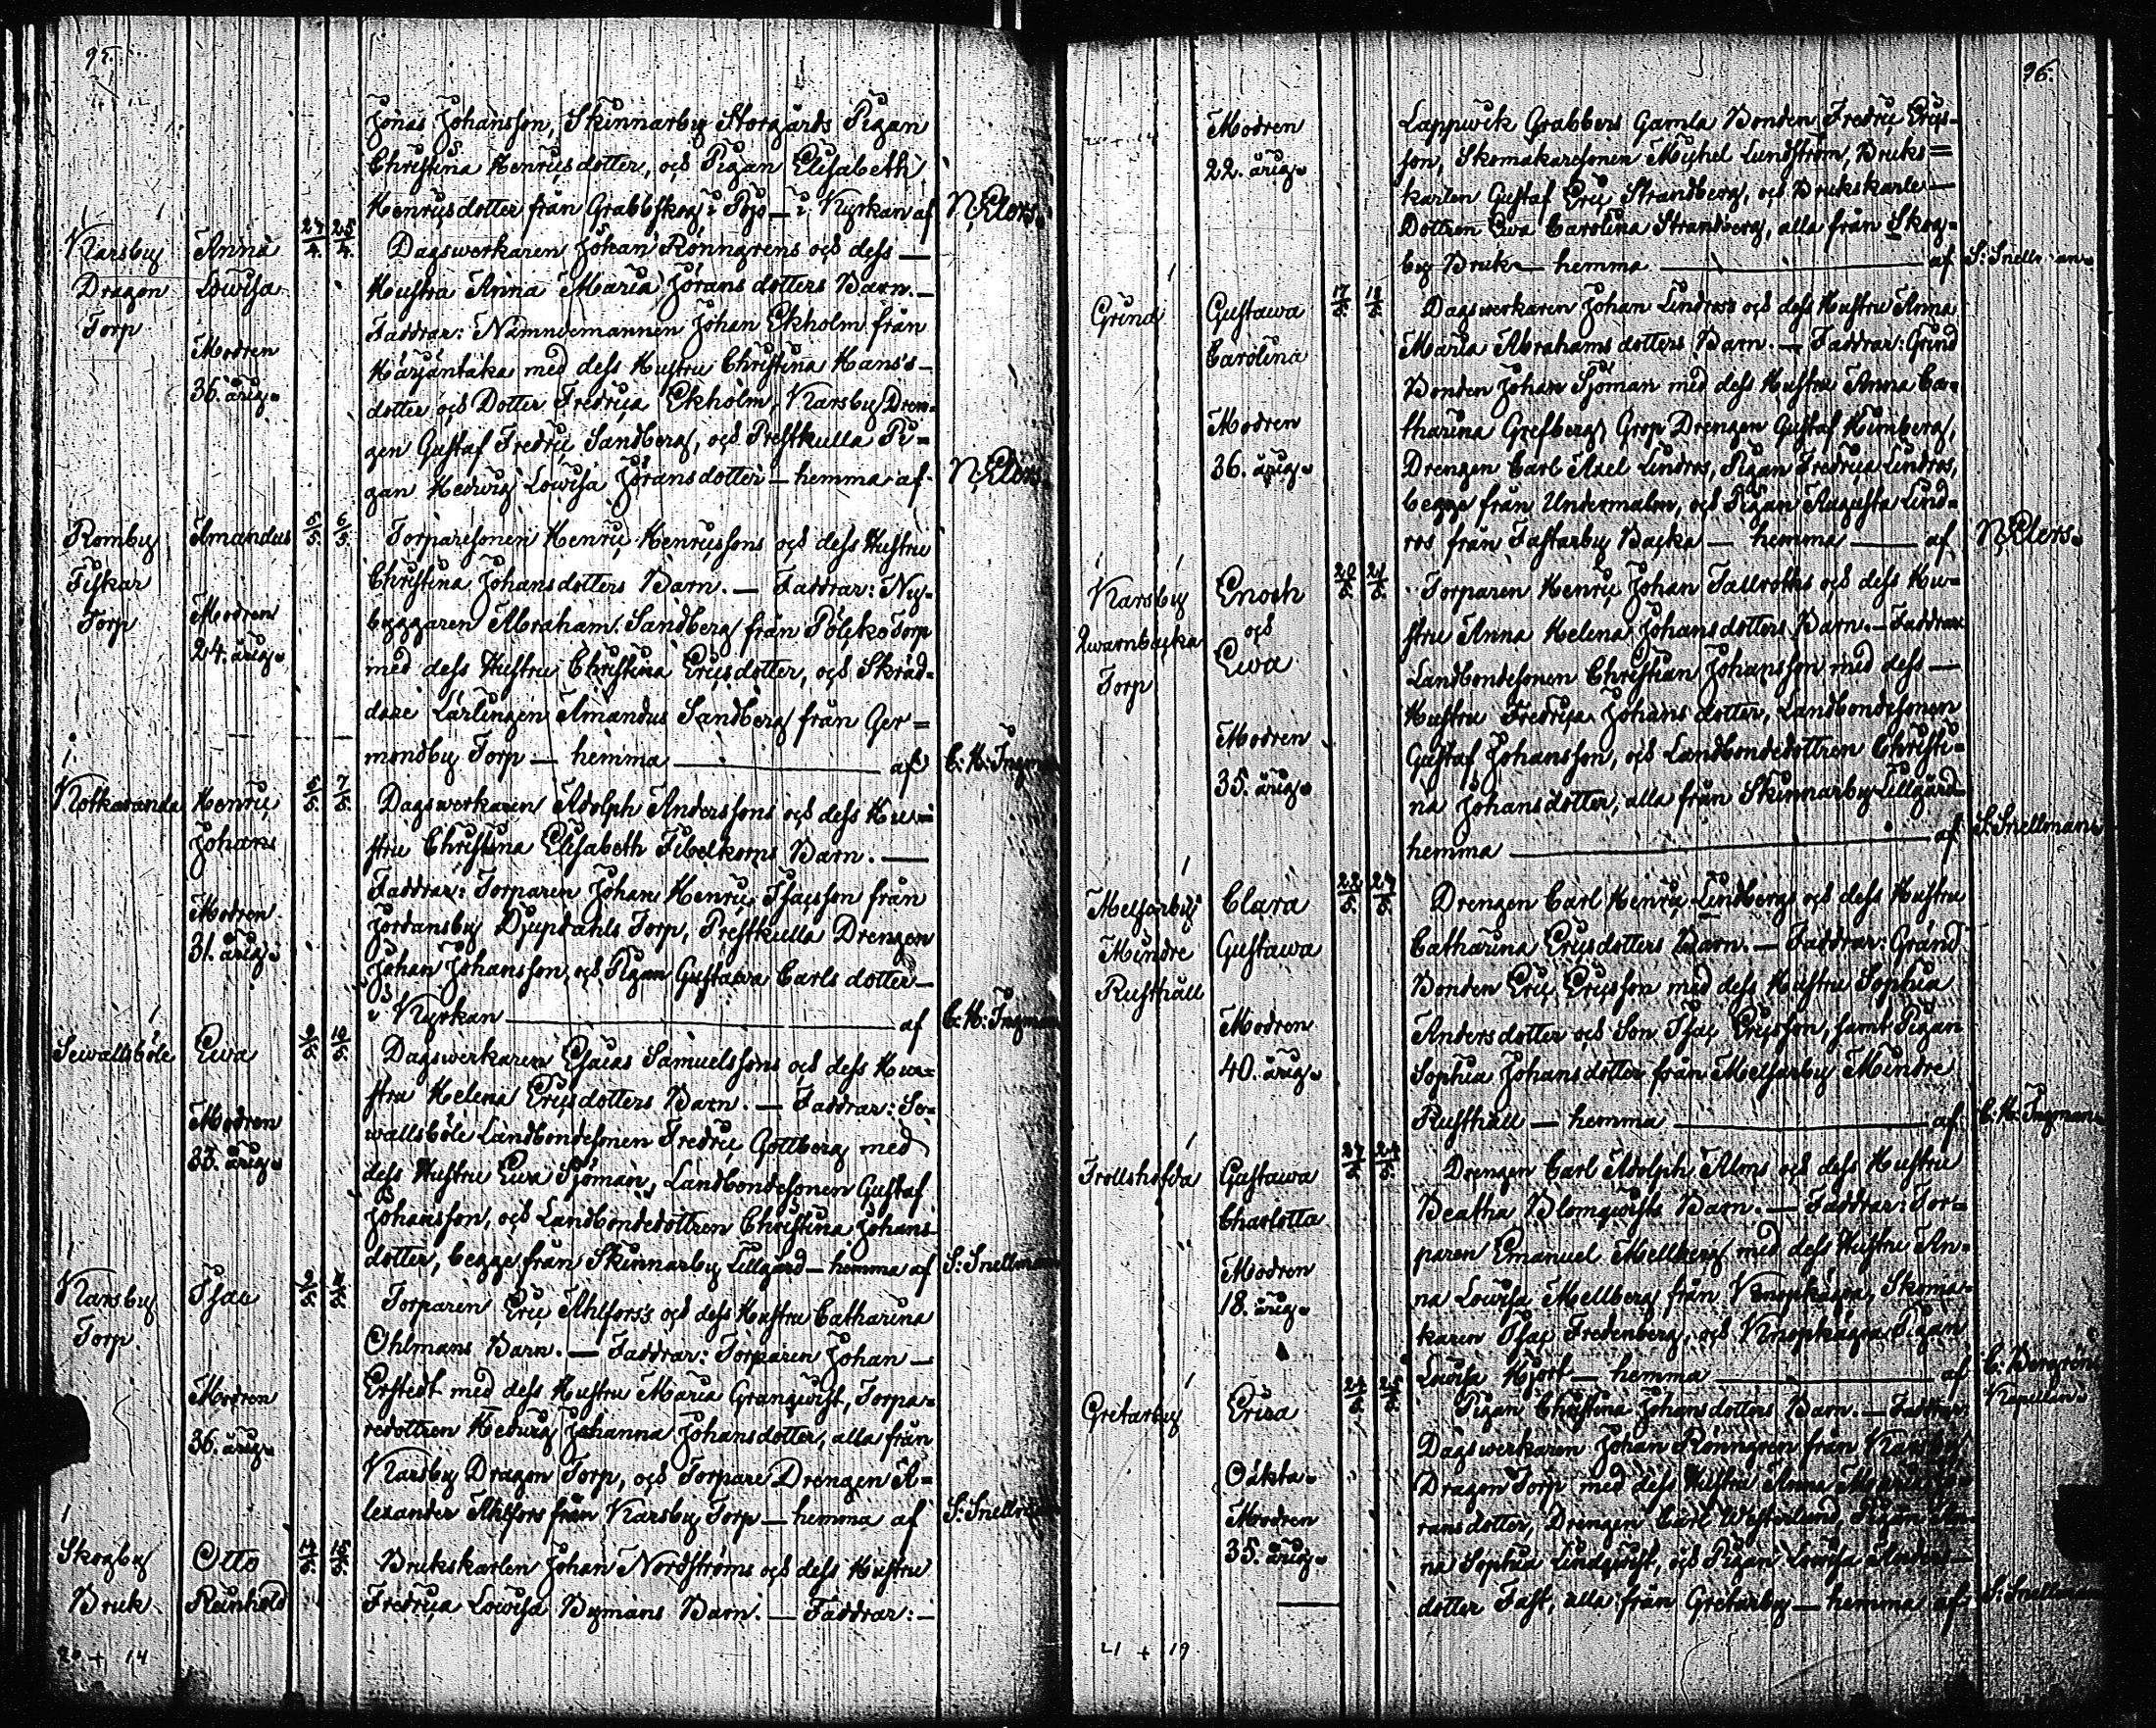 95.
Jonas Johansson, Skinnarby Storgårds Pigan
Christina Henricsdotter, och Pigan Elisabeth
Henricsdotter från Grabbskog i Pojo — i Kyrkan af N. Elers.
Karsby Anna 24/4. 25/4. Dagswerkaren Johan Rönngrens och dess —
Dragon Lowisa Hustru Anna Maria Jöransdotters Barn. —
Torp Faddrar: Nämndemannen Johan Ekholm från
Modren Härjäntaka med dess Hustru Christina Hans's-
36. årig. dotter och Dotter Fredrica Ekholm, Karsby Dren-
gen Gustaf Fredric Sandberg, och Prestkulla Pi-
gan Hedvig Lowisa Jöransdotter — hemma af N. Elers.
Romby Amandus 5/5. 6/5. Torparesonen Henric Henricssons och dess Hustru
Fiskar Christina Johansdotters Barn. — Faddrar: Ny-
Torp Modren byggaren Abraham Sandberg från Pölcko Torp
24. årig. med dess Hustru Christina Ericsdotter, och Skräd-
dare Lärlingen Amandus Sandberg från Ger-
mondby Torp — hemma — af C. H. Ingman
Kotkaranda Henric 6/5. 7/5. Dagswerkaren Adolph Anderssons och dess Hu-
Johans stru Christina Elisabeth Fibelkorns Barn. —
Faddrar: Torparen Johan Henric Isacsson från
Modren Jordansby Djupdahls Torp, Prestkulla Drengen
31. årig. Johan Johansson, och Pigan Gustawa Carlsdotter —
i Kyrkan — af C. H. Ingman
Sewallsböle Ewa 9/5. 10/5. Dagswerkaren Esaias Samuelssons och dess Hu-
stru Helena Ericsdotters Barn. — Faddrar: Se-
Modren wallsböle Landbondesonen Fredric Gottberg med
33. årig. dess Hustru Ewa Sjöman, Landbondesonen Gustaf
Johansson, och Landbondedottren Christina Johans-
dotter, begge från Skinnarby Lillgård — hemma af S. Snellman
Karsby Isac Torparen Eric Ahlfors's och dess Hustru Catharina
Torp. Öhlmans Barn. — Faddrar: Torparen Johan —
Modren Erstedt med dess Hustru Maria Granqwist, Torpa-
36. årig. redottren Hedvig Johanna Johansdotter, alla från
Karsby Dragon Torp, och Torpare Drengen A-
lexander Ahlfors från Karsby Torp — hemma af S. Snellman
Skogby Otto 14/5. 15/5. Brukskarlen Johan Nordströms och dess Hustru
Bruk Reinhold Fredrica Lowisa Bymans Barn. — Faddrar: —
20 + 14
96.
Modren Lappwik Grabbers Gamla Bonden Fredric Erics-
22. årig. son, Skomakaresonen Michel Lundström, Bruks=
karlen Gustaf Eric Strandberg, och Brukskarls —
Dottren Ewa Carolina Strandberg, alla från Skog-
by Bruk — hemma — af S. Snellman.
Grind Gustawa 17/5. 18/5. Dagswerkaren Johan Lindros's och dess Hustru Anna
Carolina Maria Abrahamsdotters Barn. — Faddrar: Grind
Bonden Johan Sjöman med dess Hustru Anna Ca-
Modren tharina Grefberg, Grop Drengen Gustaf Himberg,
36. årig. Drengen Carl Axel Lindros, Pigan Fredrica Lindros,
begge från Undermalm, och Pigan Augusta Lind-
ros från Fastarby Backa — hemma — af N. Elers.
Karsby Enoch 20/5. 21/5. Torparen Henric Johan Tallroths och dess Hu-
Qwarnbacka och stru Anna Helena Johansdotters Barn. — Faddrar:
Torp Ewa Landbondesonen Christian Johansson med dess —
Hustru Fredrica Johansdotter, Landbondesonen
Modren Gustaf Johansson, och Landbondedottren Christi-
35. årig. na Johansdotter, alla från Skinnarby Lillgård —
hemma — af S. Snellman
Melsarby Clara 22/5. 24/5. Drengen Carl Henric Lindbergs och dess Hustru
Mindre Gustawa Catharina Ericsdotters Barn. — Faddrar: Gränd
Rusthåll Bonden Eric Ericsson med dess Hustru Sophia
Modren Andersdotter och Son Isac Ericsson, samt Pigan
40. årig. Sophia Johansdotter från Melsarby Mindre
Rusthåll — hemma — af C. H. Ingman
Trollshofda Gustawa Drengen Carl Adolph Alms och dess Hustru
Charlotta Beatha Blomqwists Barn. — Faddrar: Tor-
paren Emanuel Mellberg med dess Hustru An-
Modren na Lowisa Mellberg från Knopkägra, Skoma-
18. årig. karen Isac Fredenberg, och Knopkägra Pigan
Lowisa Hjort — hemma — af C. Bergroth
Kapellan.
Gretarby Erica Pigan Christina Johansdotters Barn. — Faddrar:
Dagswerkaren Johan Rönngren från Karsby
Oäkta. Dragon Torp med dess Hustru Anna Maria Jö-
Modren ransdotter, Drengen Carl Westerlund, Pigan An-
35. årig. na Sophia Lindqwist, och Pigan Lowisa
dotter Fast, alla från Gretarby — hemma af S. Snellman
21 + 19